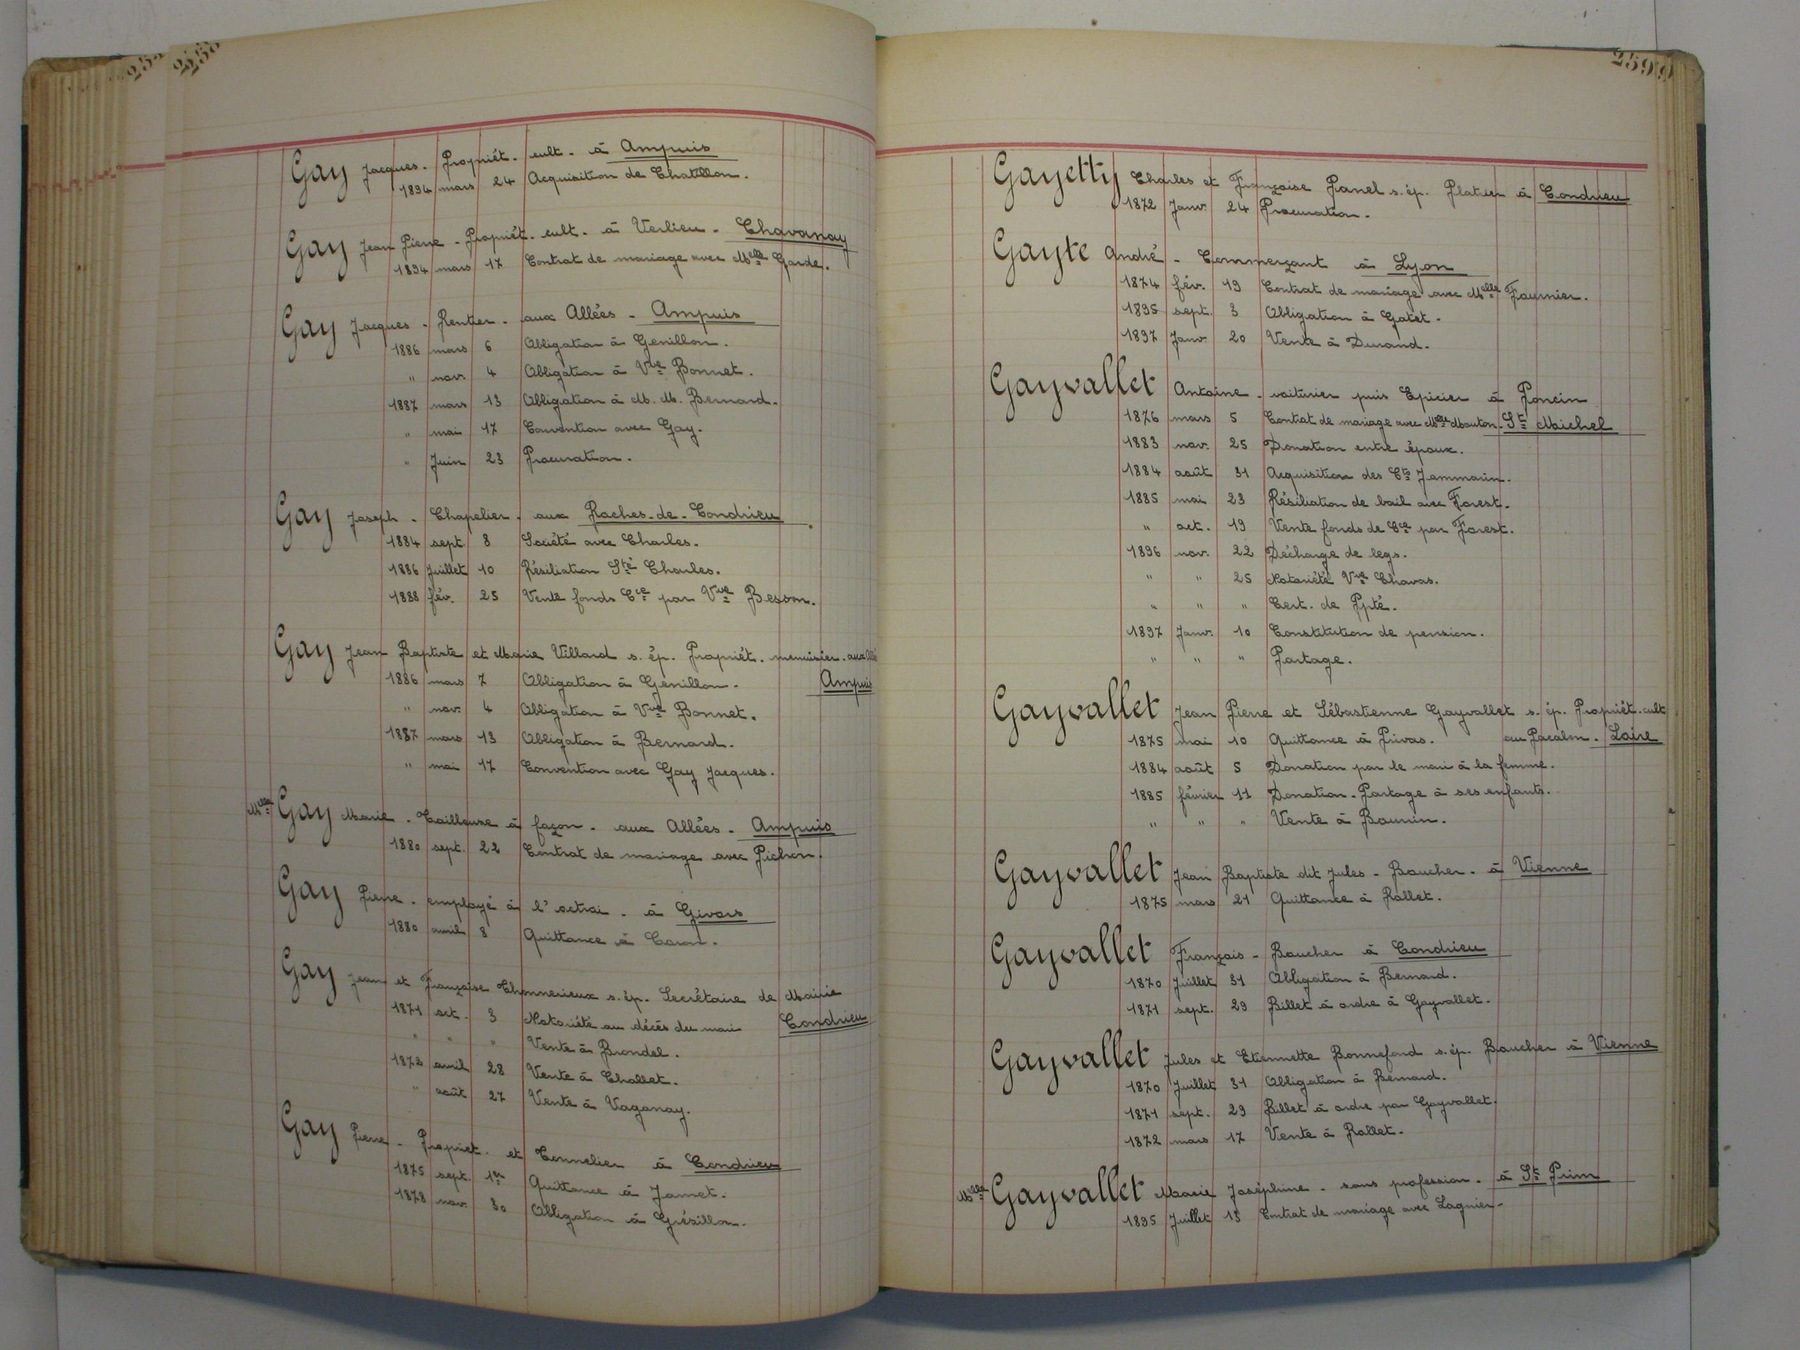 258
Gay Jacques. Propriét. cult. à Ampuis
1894 mars 24 Acquisition de Chatillon.
Gay Jean Pierre - Propriét. cult. à Verlieu - Chavanay
1894 mars 17 Contrat de mariage avec Melle Garde.
Gay Jacques - Rentier - aux Allées - Ampuis
1886 mars 6 Obligation à Genillon.
" nov. 4 Obligation à Vve Bonnet.
1887 mars 13 Obligation à M. M. Bernard.
" mai 17 Convention avec Gay.
" Juin 23 Procuration.
Gay Joseph - Chapelier - aux Roches-de-Condrieu
1884 sept. 8 Société avec Charles.
1886 Juillet 10 Résiliation Sté Charles.
1888 fév. 25 Vente fonds Cce par Vve Besson.
Gay Jean Baptiste et Marie Villard s. ép. Propriét. menuisier. aux
1886 mars 7 Obligation à Genillon. Ampuis
" nov. 4 Obligation à Vve Bonnet.
1887 mars 13 Obligation à Bernard.
" mai 17 Convention avec Gay Jacques.
Melle Gay Marie - Tailleuse à façon - aux Allées - Ampuis
1880 sept. 22 Contrat de mariage avec Pichon.
Gay Pierre - employé à l'octroi - à Givors
1880 avril 8 Quittance à Caron.
Gay Jean et Françoise Chonnerieux s. ép. Secrétaire de Mairie
1871 oct. 3 Notoriété au décès du mari Condrieu
" " " Vente à Brondel.
1873 avril 28 Vente à Chollet.
" août 27 Vente à Vaganay.
Gay Pierre - Propriet. et Tonnelier à Condrieu
1875 sept. 1er Quittance à Jamet.
1878 nov. 30 Obligation à Grésillon.
259
Gayetty Charles et Françoise Panel s. ép. Platrier à Condrieu
1872 Janv. 24 Procuration.
Gayte André - Commerçant à Lyon
1874 fév. 19 Contrat de mariage avec Melle Fournier.
1895 sept. 3 Obligation à Gatet.
1897 Janv. 20 Vente à Durand.
Gayvallet Antoine - voiturier puis Epicier à Poncin
1876 mars 5 Contrat de mariage avec Melle Mouton - St Michel
1883 nov. 25 Donation entre époux.
1884 août 31 Acquisition des Cts Jammarin.
1885 mai 23 Résiliation de bail avec Forest.
" oct. 19 Vente fonds de Cce par Forest.
1896 nov. 22 Décharge de legs.
" " 25 Notoriété Vve Chavas.
" " " Cert. de Ppté.
1897 Janv. 10 Constitution de pension.
" " " Partage.
Gayvallet Jean Pierre et Sébastienne Gayvallet s. ép. Propriét. cult
1875 mai 10 Quittance à Privas. au Pacalon. Loire
1884 août 5 Donation par le mari à la femme.
1885 février 11 Donation - Partage à ses enfants.
" " " Vente à Bourrin.
Gayvallet Jean Baptiste dit Jules - Boucher - à Vienne
1875 mars 21 Quittance à Rollet.
Gayvallet François - Boucher à Condrieu
1870 Juillet 31 Obligation à Bernard.
1871 sept. 29 Billet à ordre à Gayvallet.
Gayvallet Jules et Etiennette Bonnefond s. ép. Boucher à Vienne
1870 Juillet 31 Obligation à Bernard.
1871 sept. 29 Billet à ordre par Gayvallet.
1872 mars 17 Vente à Rollet.
Melle Gayvallet Marie Joséphine - sans profession - à St Prim
1895 Juillet 15 Contrat de mariage avec Lagnier -